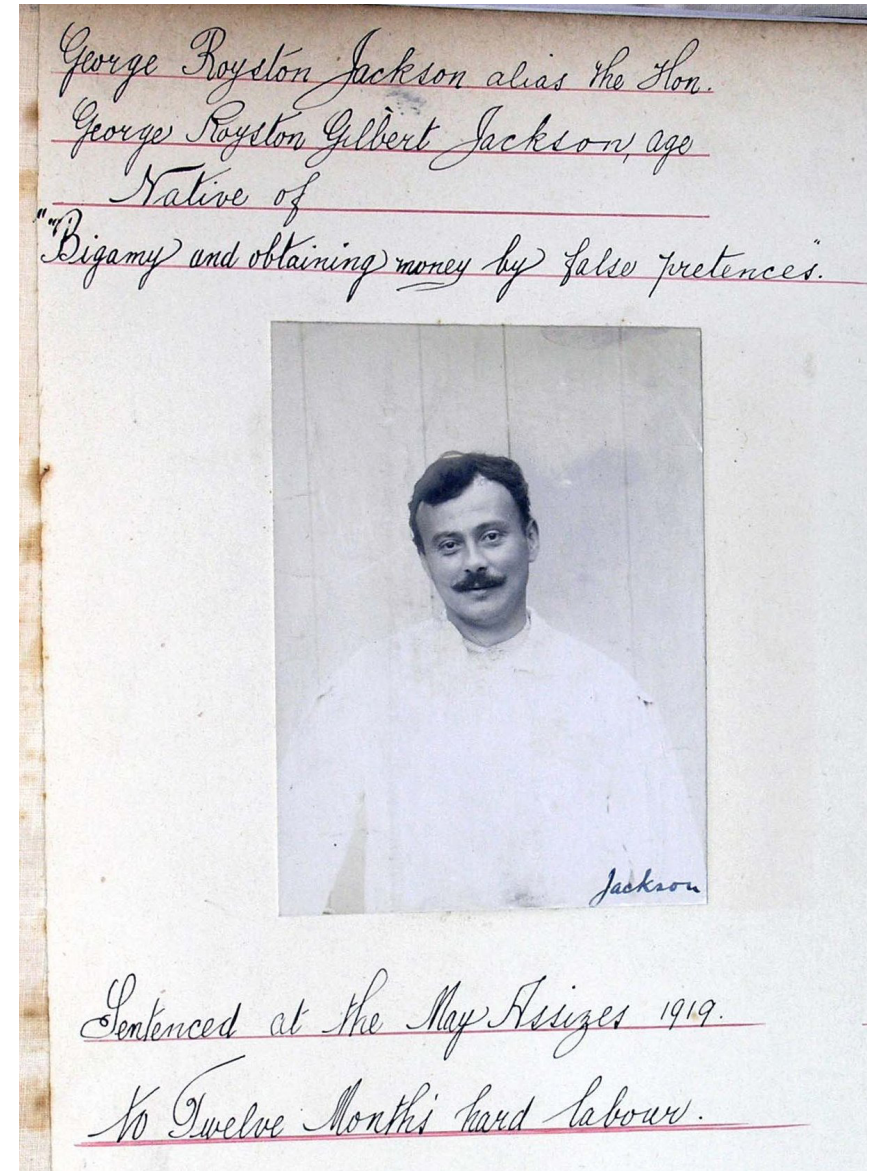 George Royston Jackson alias the Hon.
George Royston Gilbert Jackson, age
Native of
"Bigamy and obtaining money by false pretences".
Jackson
Sentenced at the May Assizes 1919.
to Twelve Months hard labour.